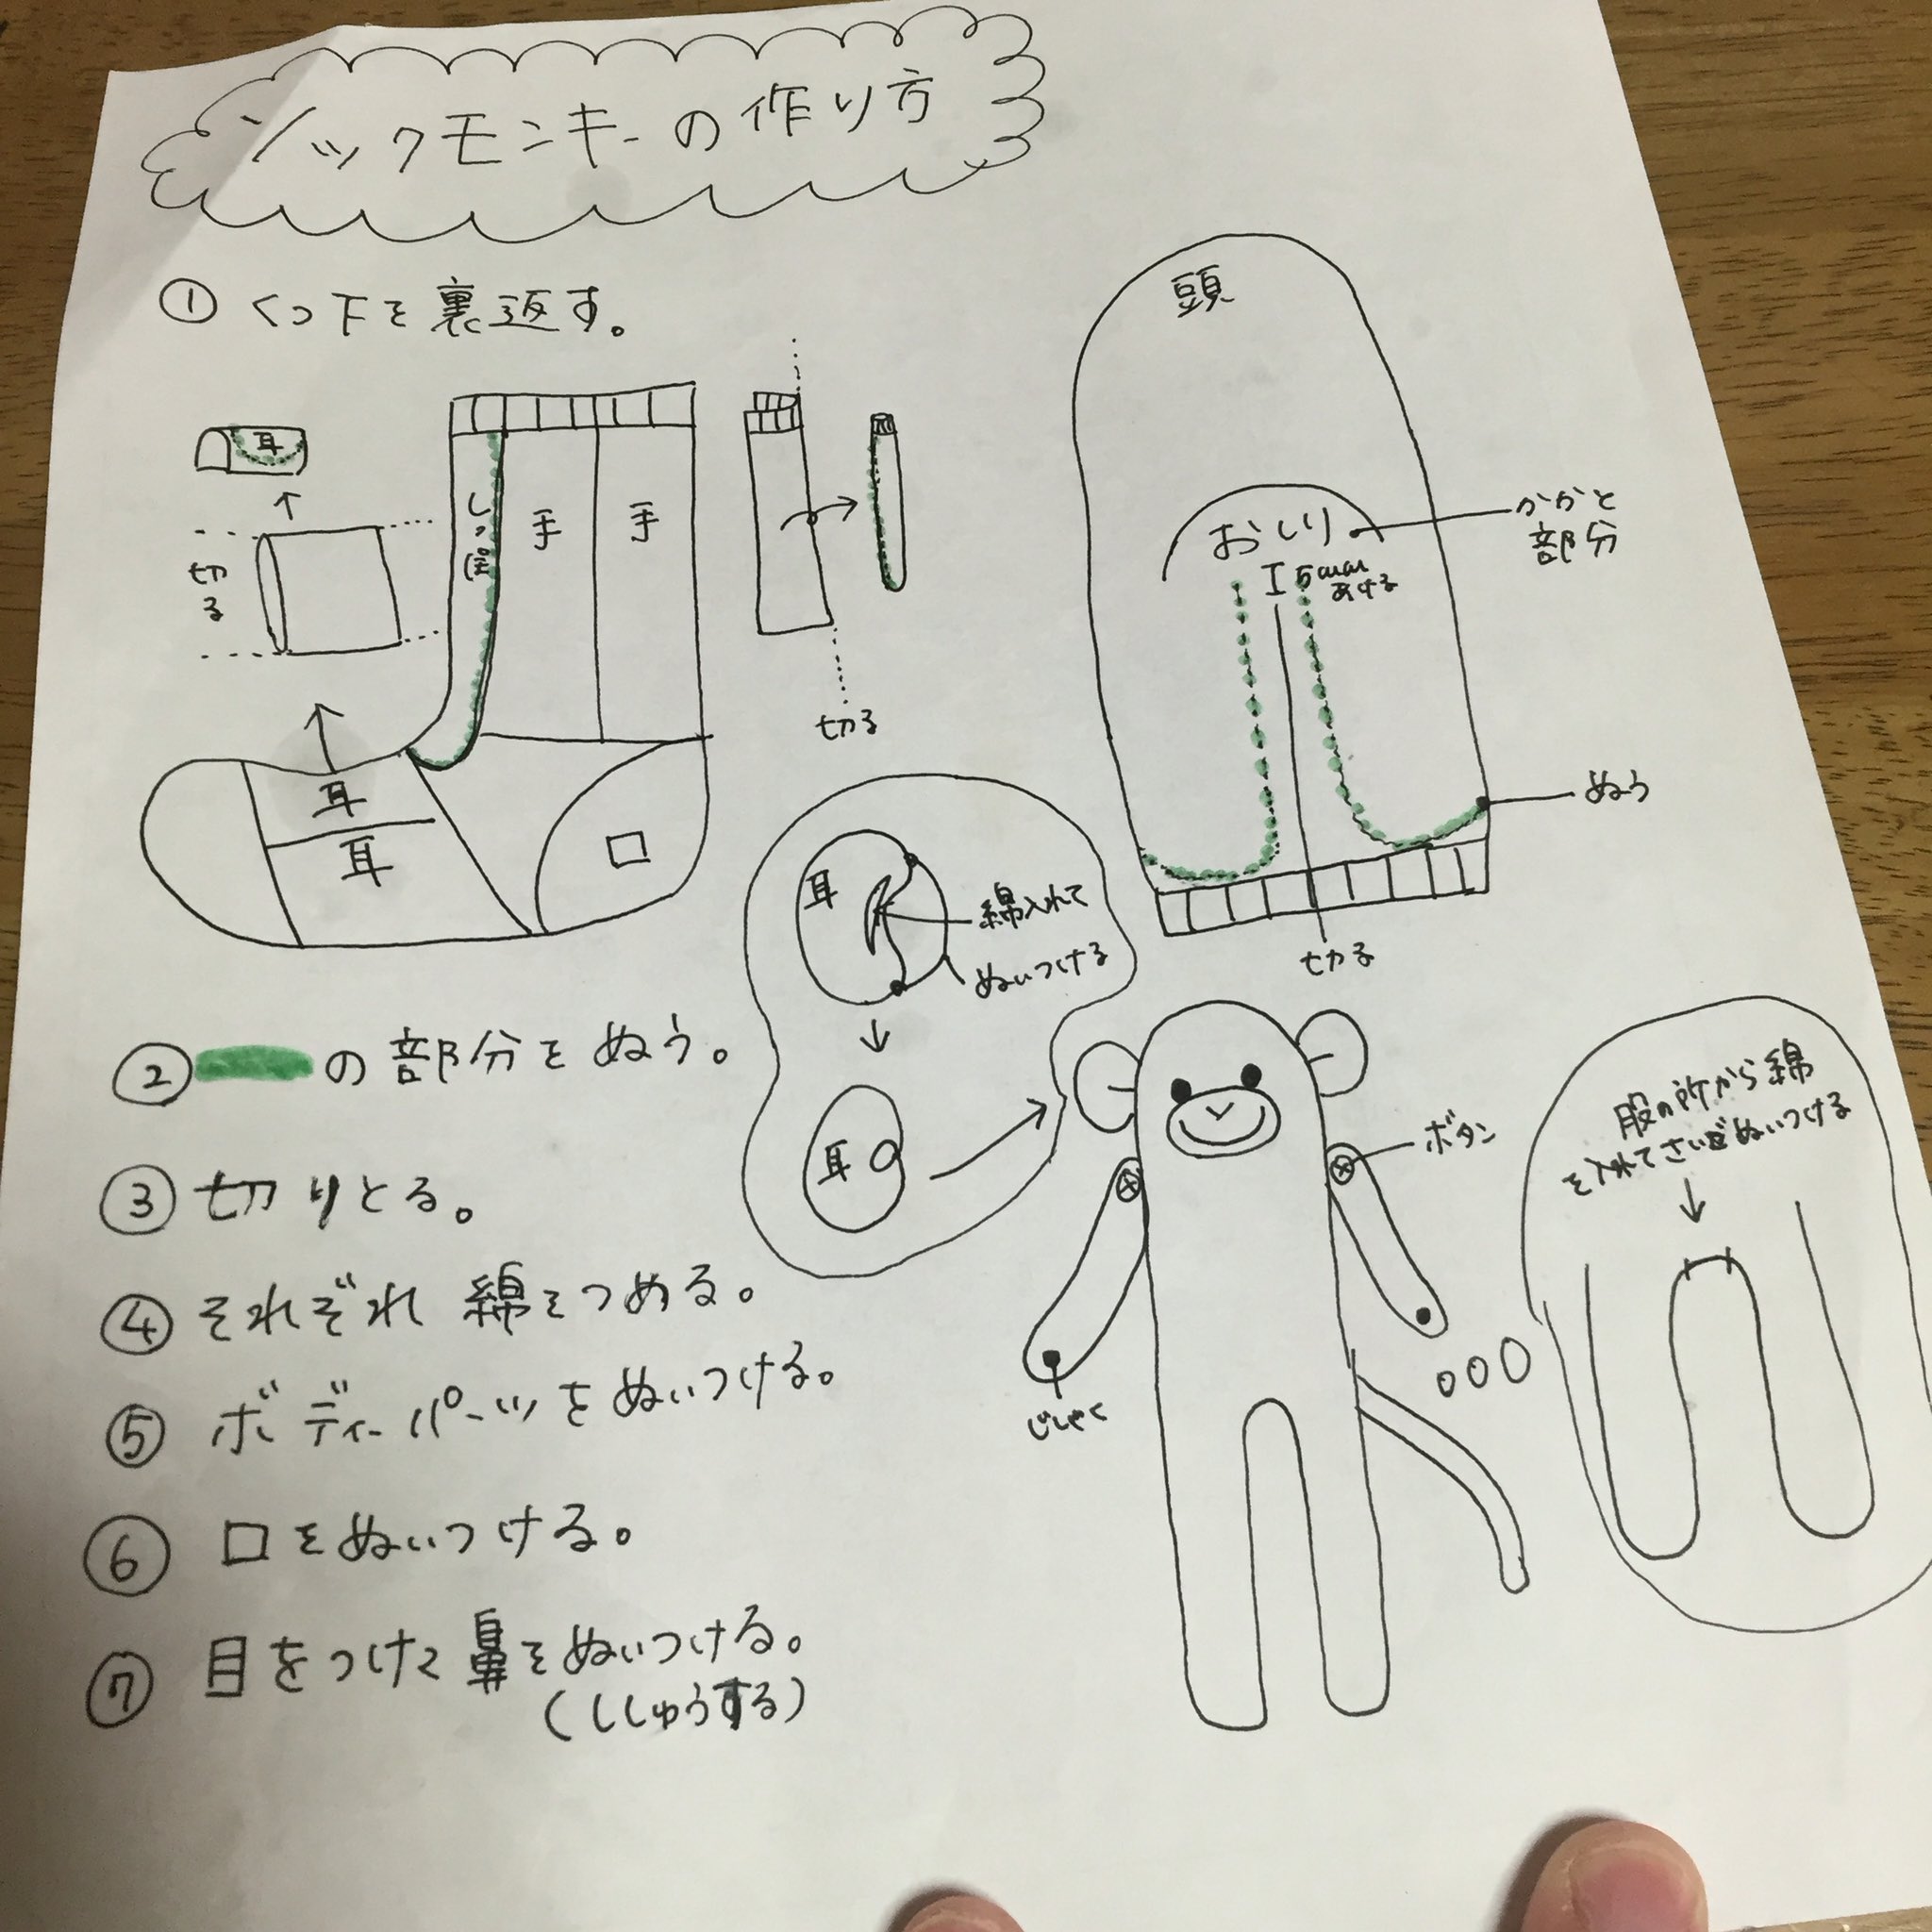 ソックモンキーの作り方
① くつ下を裏返す。
耳
切
る
しっぽ
手
手
耳
耳
口
切る
頭
おしり
5mm
あける
かかと
部分
ぬう
切る
耳
綿入れて
ぬいつける
耳
② の部分をぬう。
③ 切りとる。
④ それぞれ 綿をつめる。
⑤ ボディーパーツをぬいつける。
⑥ 口をぬいつける。
⑦ 目をつけて鼻をぬいつける。
(ししゅうする)
ボタン
じしゃく
服の所から綿
を入れてさいごぬいつける